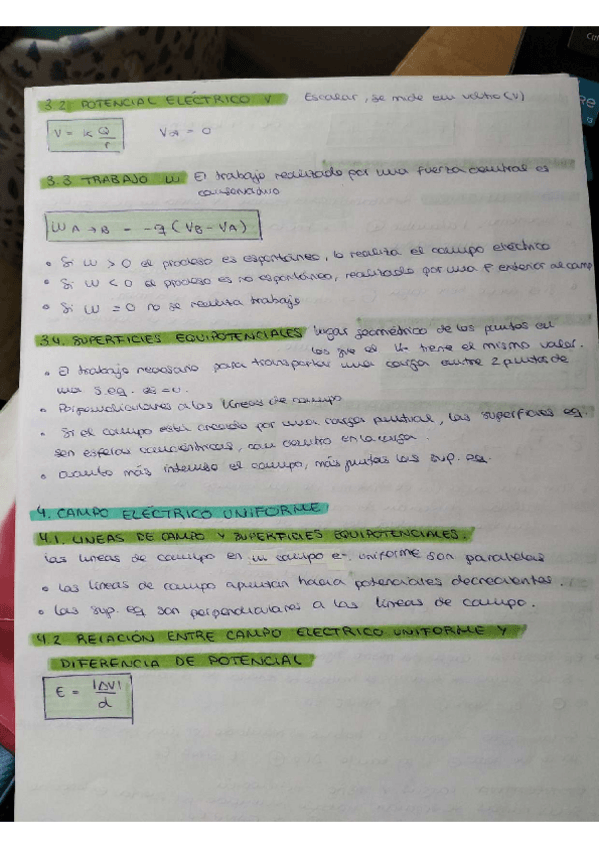 3.2 POTENCIAL ELÉCTRICO V Escalar, se mide em voltio (V)
V = K Q/r V∞ = 0
3.3 TRABAJO W. El trabajo realizado por una fuerza central es
conservativo
W A→B = -q (VB - VA)
• Si W > 0 el proceso es espontáneo, lo realiza el campo eléctrico
• Si W < 0 el proceso es no espontáneo, realizado por una F exterior al camp
• Si W = 0 no se realiza trabajo
3.4. SUPERFICIES EQUIPOTENCIALES lugar geométrico de los puntos en
los que el tiene el mismo valor.
• El trabajo necesario para transportar una carga entre 2 puntos de
una s.eq. es = 0.
• Perpendiculares a las líneas de campo
• Si el campo está creado por una carga puntual, las superficies eq.
son esferas concéntricas, con centro en la carga.
• cuanto más intenso el campo, más juntas las sup. eq.
4. CAMPO ELÉCTRICO UNIFORME
4.1. LINEAS DE CAMPO Y SUPERFICIES EQUIPOTENCIALES.
Las lineas de campo en un campo e-. uniforme son paralelas
• Las líneas de campo apuntan hacia potenciales decrecientes.
• Las sup. eq son perpendiculares a las líneas de campo.
4.2 RELACIÓN ENTRE CAMPO ELECTRICO UNIFORME Y
DIFERENCIA DE POTENCIAL
E = |ΔV|/d